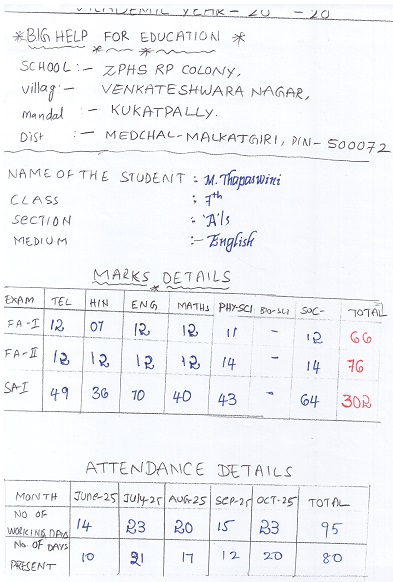 ACADEMIC YEAR - 20 - 20
*BIG HELP FOR EDUCATION *
SCHOOL :- ZPHS RP COLONY,
Villag :- VENKATESHWARA NAGAR,
Mandal :- KUKATPALLY.
Dist :- MEDCHAL-MALKATGIRI, PIN-500072
NAME OF THE STUDENT :- M. Thapaswini
CLASS :- 7th
SECTION :- 'A'ls
MEDIUM :- English
MARKS DETAILS
EXAM TEL HIN ENG MATHS PHY-SCI BIO-SCI SOC- TOTAL
FA-I 12 07 12 12 11 - 12 66
FA-II 12 12 12 12 14 - 14 76
SA-I 49 36 70 40 43 - 64 302
ATTENDANCE DETAILS
MONTH June-25 July-25 AUG-25 SEP-25 OCT-25 TOTAL
NO OF
WORKING DAYS 14 23 20 15 23 95
No. OF DAYS
PRESENT 10 21 17 12 20 80